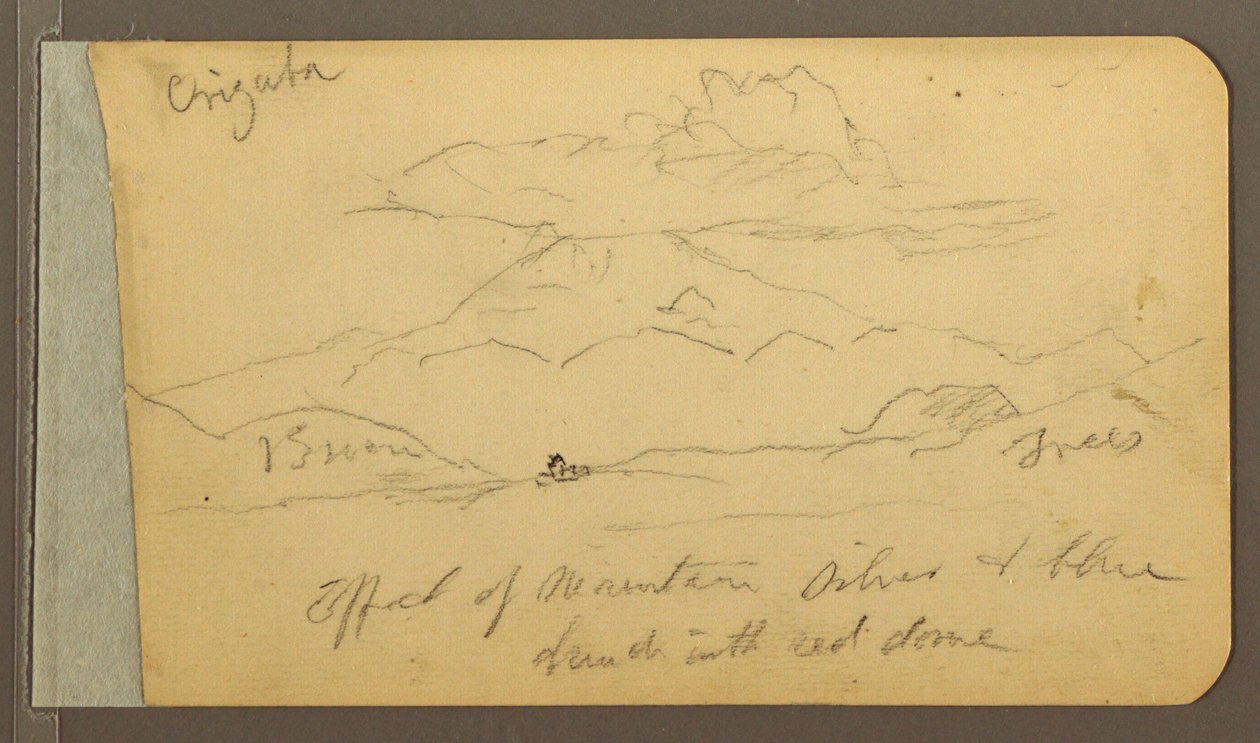 Orizaba
Brown
Trees
Effect of Mountain Silver & blue
with red dome